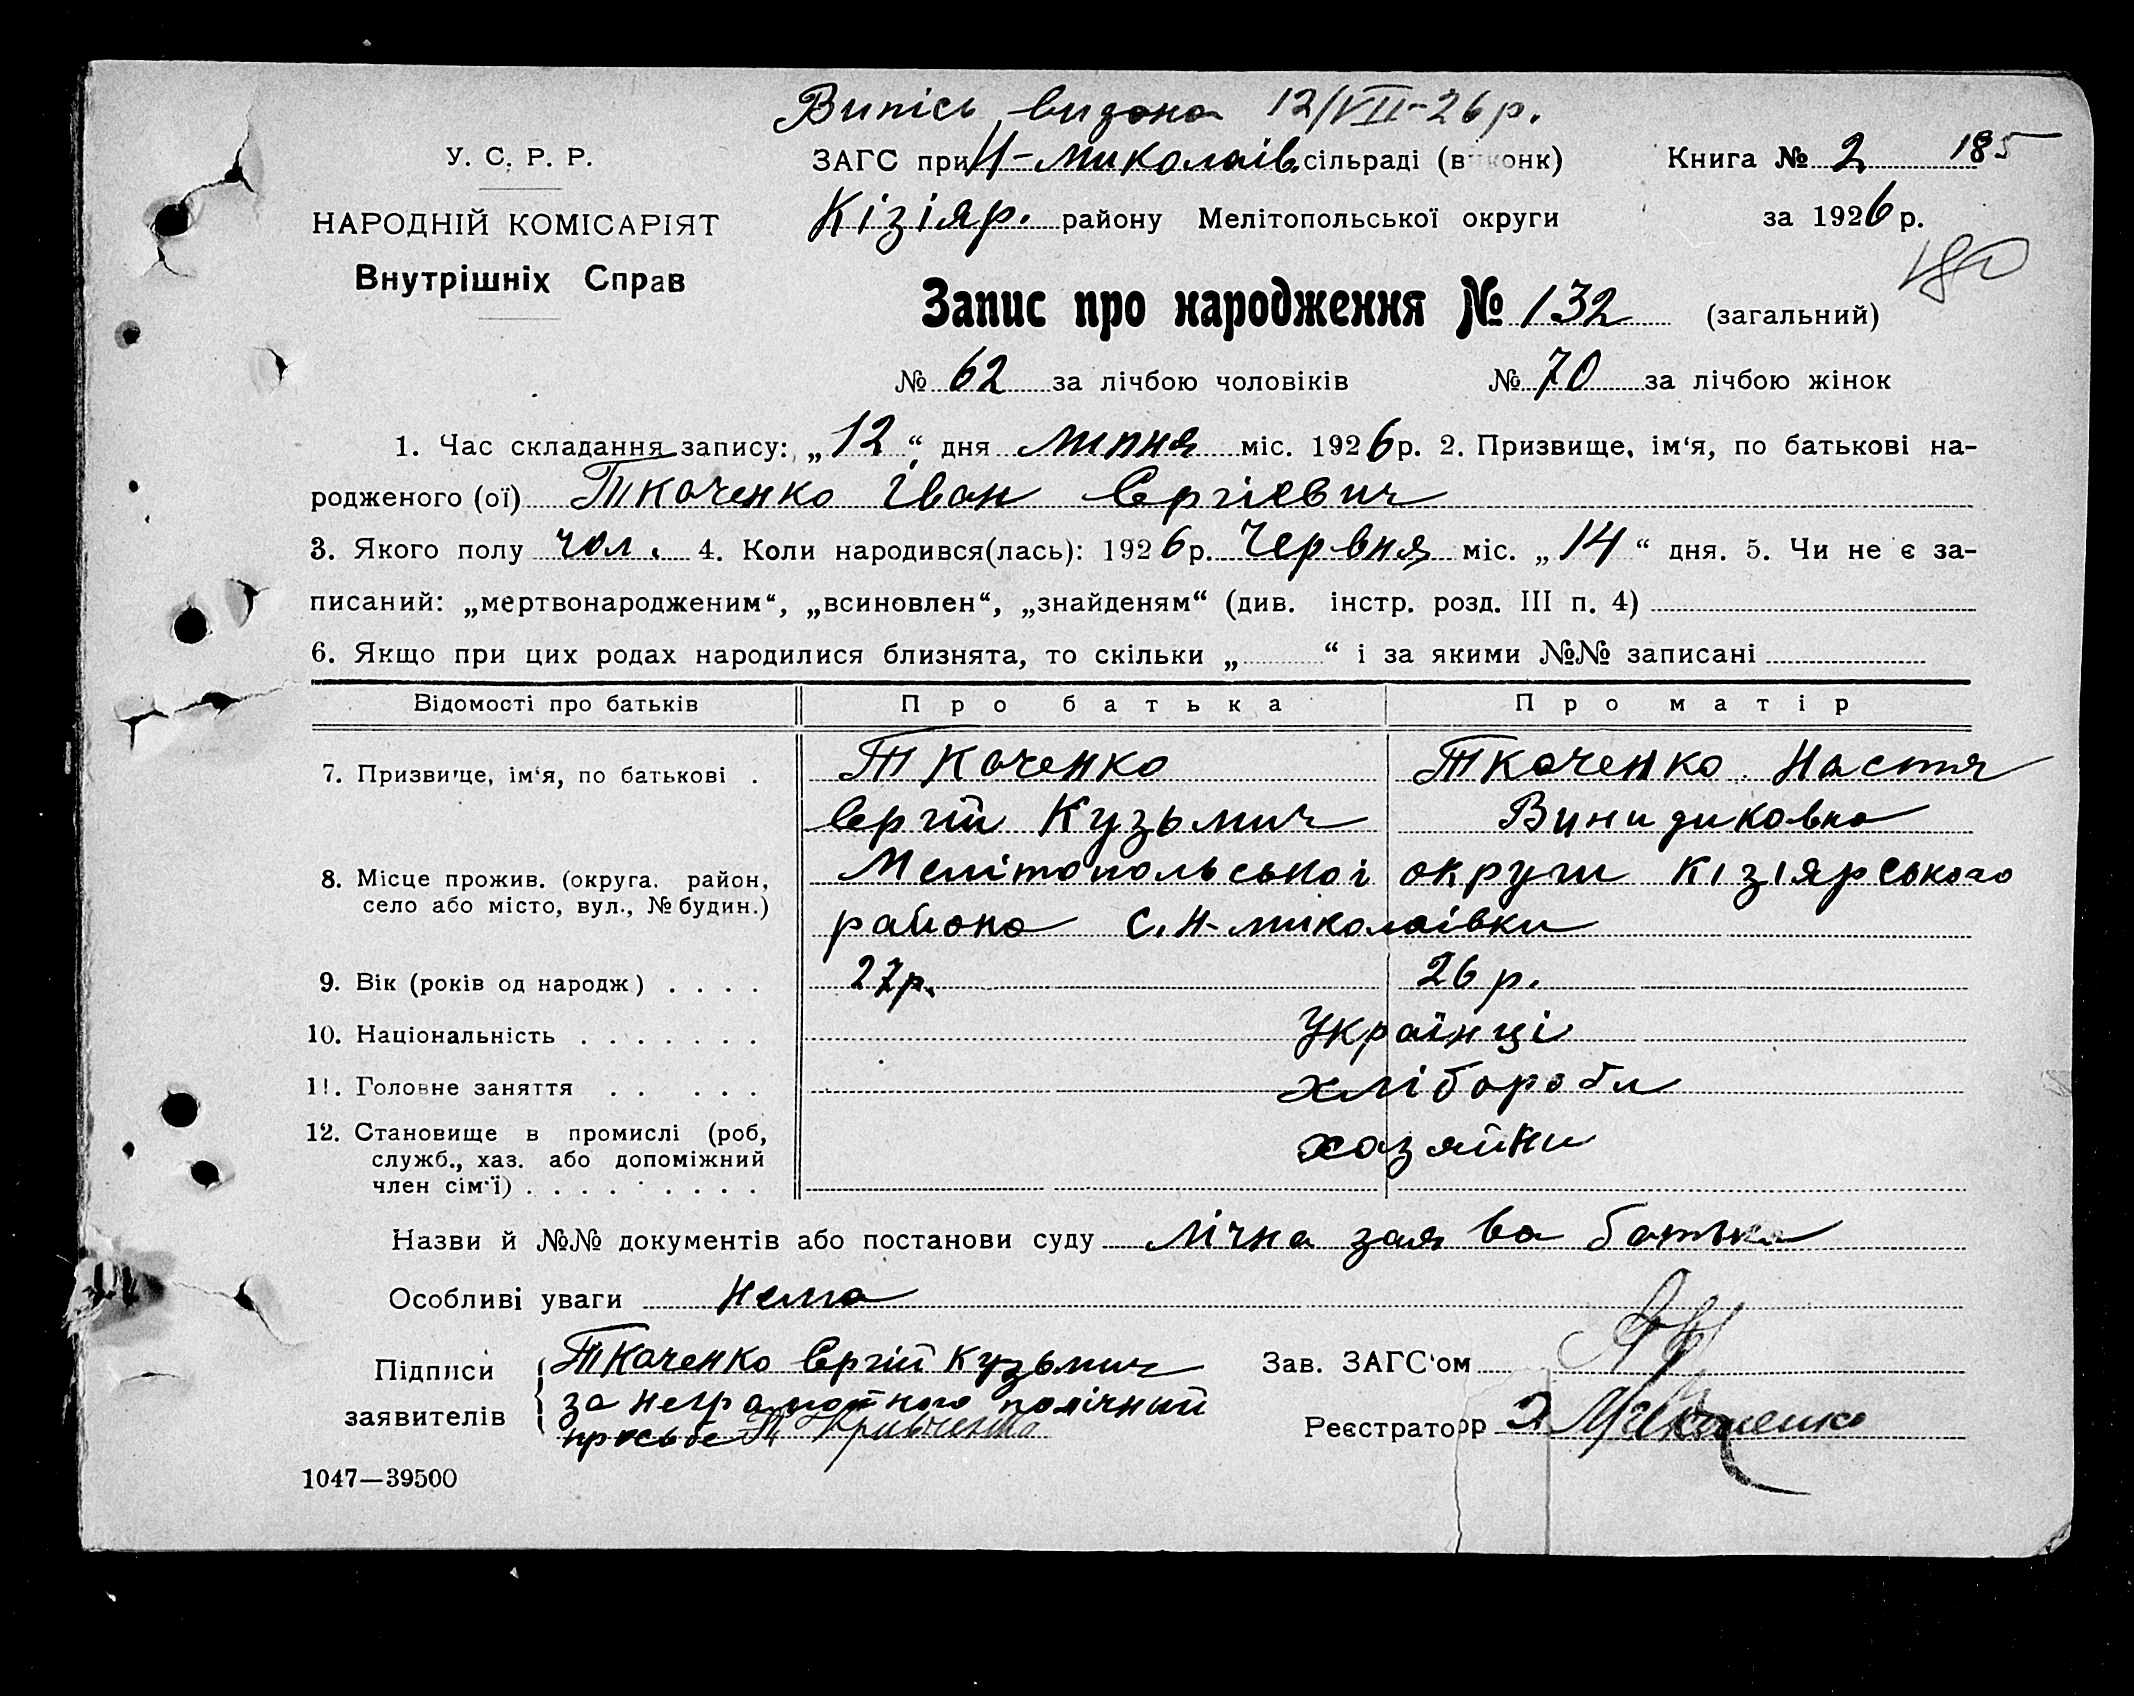 Випісь видана 12/VII-26 р.
У. С. Р. Р.
ЗАГС при Н-Миколаїв. сільраді (виконк)
Книга № 2 185
НАРОДНІЙ КОМІСАРІЯТ
Кізіяр. району Мелітопольської округи
за 1926 р.
Внутрішніх Справ
180
Запис про народження № 132 (загальний)
№ 62 за лічбою чоловіків № 70 за лічбою жінок
1. Час складання запису: „12“ дня липня міс. 1926 р. 2. Призвище, ім‘я, по батькові на-
родженого (ої) Ткаченко Іван Сергієвич
3. Якого полу чол. 4. Коли народився(лась): 1926 р. Червня міс. „14“ дня. 5. Чи не є за-
писаний: „мертвонародженим“, „всиновлен“, „знайденям“ (див. інстр. розд. III п. 4)
6. Якщо при цих родах народилися близнята, то скільки „ “ і за якими №№ записані
Відомості про батьків Про батька Про матір
7. Призвище, ім‘я, по батькові . Ткаченко Ткаченко Настя
Сергій Кузьмич Винидиковна
8. Місце прожив. (округа, район, Мелітопольської округи Кізіярського
село або місто, вул., № будин.) района с. Н-Миколаївки
9. Вік (років од народж) . . . . 27 р. 26 р.
10. Національність . . . . . . . Українці
11. Головне заняття . . . . . хлібороби
12. Становище в промислі (роб, хазяйки
служб., хаз. або допоміжний
член сім‘ї) . . . . . . . . .
Назви й №№ документів або постанови суду лічна заява батька
Особливі уваги нема
Підписи Ткаченко Сергій Кузьмич Зав. ЗАГС‘ом
заявителів за неграмотного по лічний Реєстратор
просьбе Кравченко
1047—39500